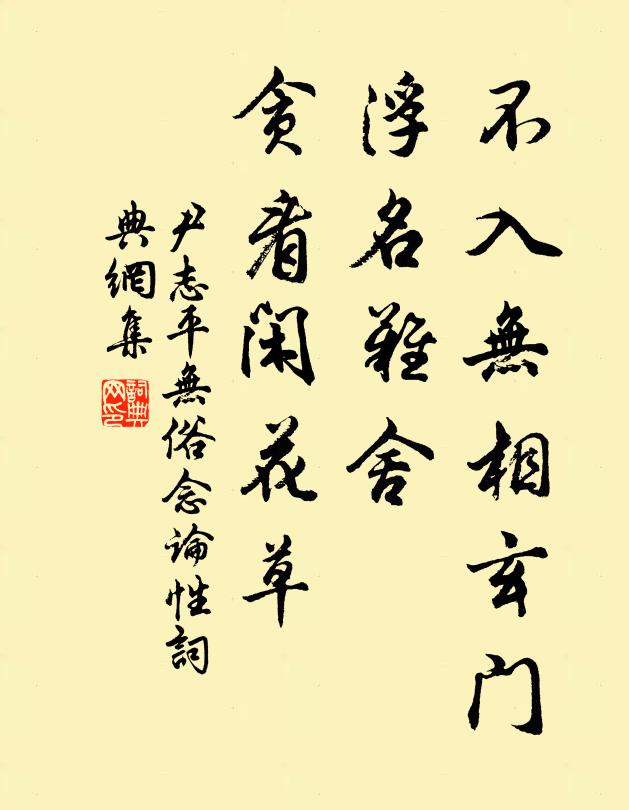 不入無相玄門
浮名難舍
貪看閑花草
尹志平無俗念論性詞
典網集
詞典網印